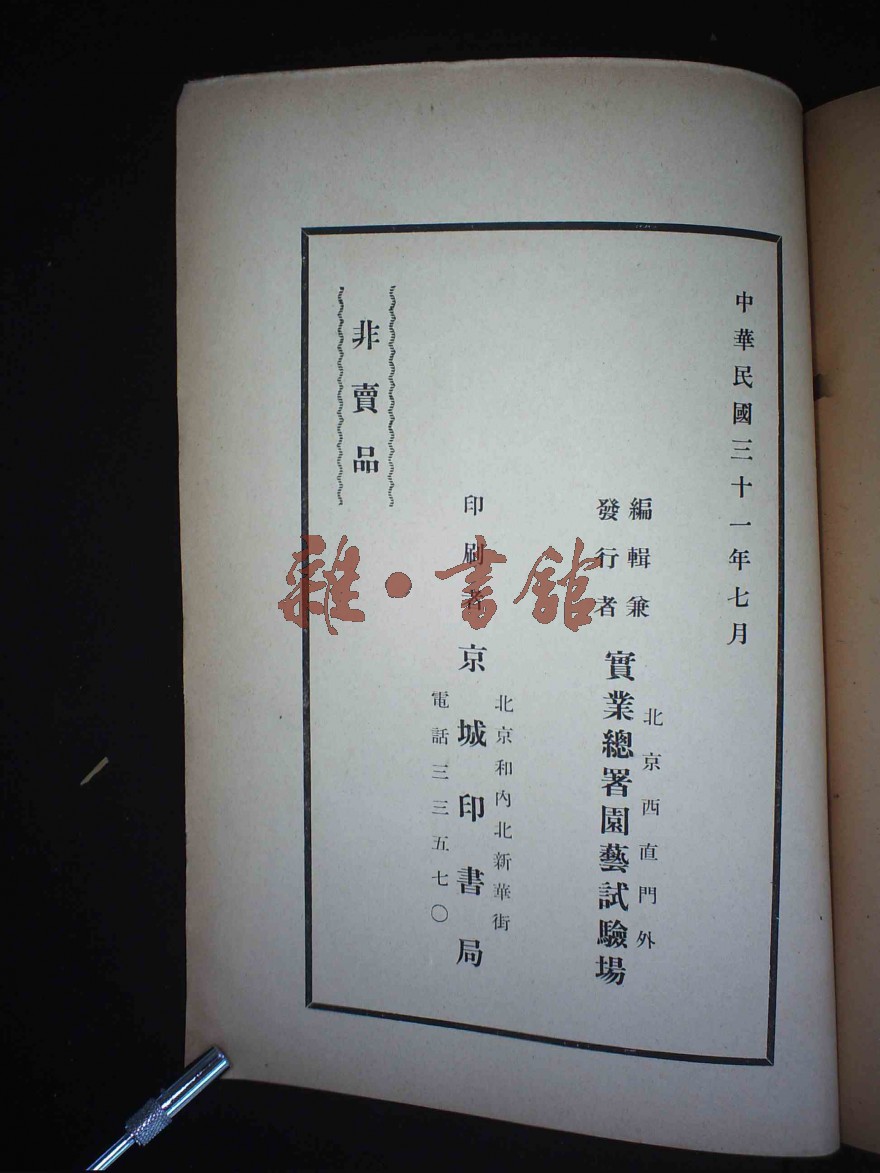 中華民國三十一年七月
編輯兼
發行者
北京西直門外
實業總署園藝試驗場
印刷者
北京和內北新華街
京城印書局
電話三三五七〇
非賣品
雜·書館